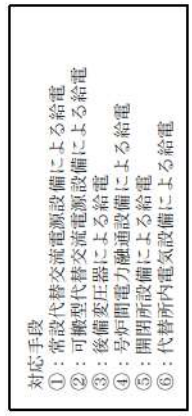 対応手段
①：常設代替交流電源設備による給電
②：可搬型代替交流電源設備による給電
③：後備変圧器による給電
④：号炉間電力融通設備による給電
⑤：開閉所設備による給電
⑥：代替所内電気設備による給電